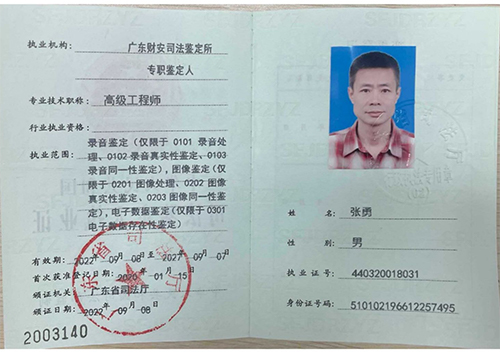 执业机构: 广东财安司法鉴定所
专职鉴定人
专业技术职称: 高级工程师
行业执业资格:
执业范围: 录音鉴定(仅限于 0101 录音处
理、0102 录音真实性鉴定、0103
录音同一性鉴定),图像鉴定(仅
限于 0201 图像处理、0202 图像
真实性鉴定、0203 图像同一性鉴
定),电子数据鉴定(仅限于 0301
电子数据存在性鉴定)
有效期: 2022年09月08日至2027年09月07日
首次获准登记日期: 2020年01月15日
颁证机关: 广东省司法厅
颁证日期: 2022年09月08日
2003140
姓名: 张勇
性别: 男
执业证号: 440320018031
身份证号码: 510102196612257495